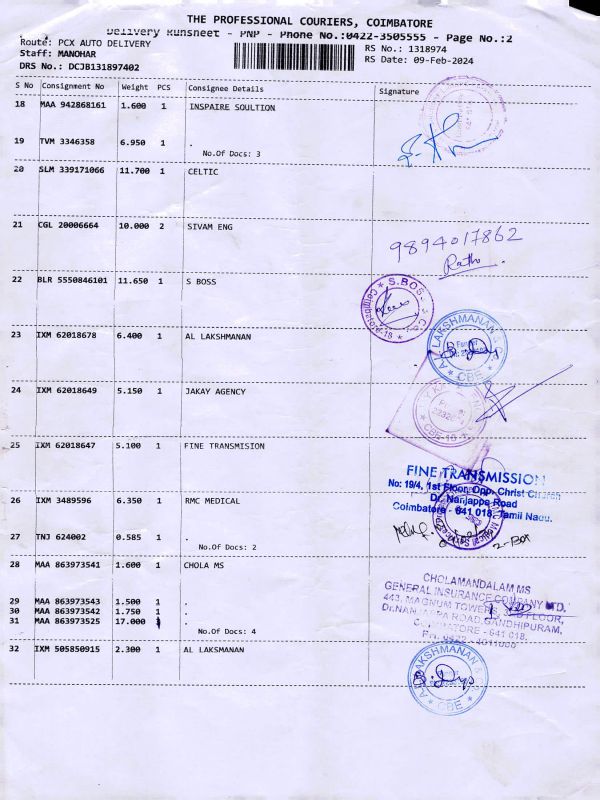 THE PROFESSIONAL COURIERS, COIMBATORE
Delivery Runsheet - PNP - Phone No.:0422-3505555 - Page No.:2
Route: PCX AUTO DELIVERY
Staff: MANOHAR
DRS No.: DCJB131897402
RS No.: 1318974
RS Date: 09-Feb-2024
S No Consignment No Weight PCS Consignee Details Signature
18 MAA 942868161 1.600 1 INSPAIRE SOULTION
19 TVM 3346358 6.950 1 .
No.Of Docs: 3
20 SLM 339171066 11.700 1 CELTIC
21 CGL 20006664 10.000 2 SIVAM ENG
9894017862
Ratho
22 BLR 5550846101 11.650 1 S BOSS
S.BOSS
Coimbatore-18
23 IXM 62018678 6.400 1 AL LAKSHMANAN
AL LAKSHMANAN &
CBE
24 IXM 62018649 5.150 1 JAKAY AGENCY
CBE-18
25 IXM 62018647 5.100 1 FINE TRANSMISION
FINE TRANSMISSION
No: 19/4, 1st Floor, Opp. Christ Church
Dr. Nanjappa Road
Coimbatore - 641 018, Tamil Nadu.
26 IXM 3489596 6.350 1 RMC MEDICAL
2-Box
27 TNJ 624002 0.585 1 .
No.Of Docs: 2
28 MAA 863973541 1.600 1 CHOLA MS
CHOLAMANDALAM MS
GENERAL INSURANCE COMPANY LTD.
443, MAGNUM TOWER, FLOOR,
Dr.NANJAPPA ROAD, GANDHIPURAM,
COIMBATORE - 641 018.
29 MAA 863973543 1.500 1 .
30 MAA 863973542 1.750 1 .
31 MAA 863973525 17.000 1 .
No.Of Docs: 4
32 IXM 505850915 2.300 1 AL LAKSMANAN
AL LAKSHMANAN & CO
CBE